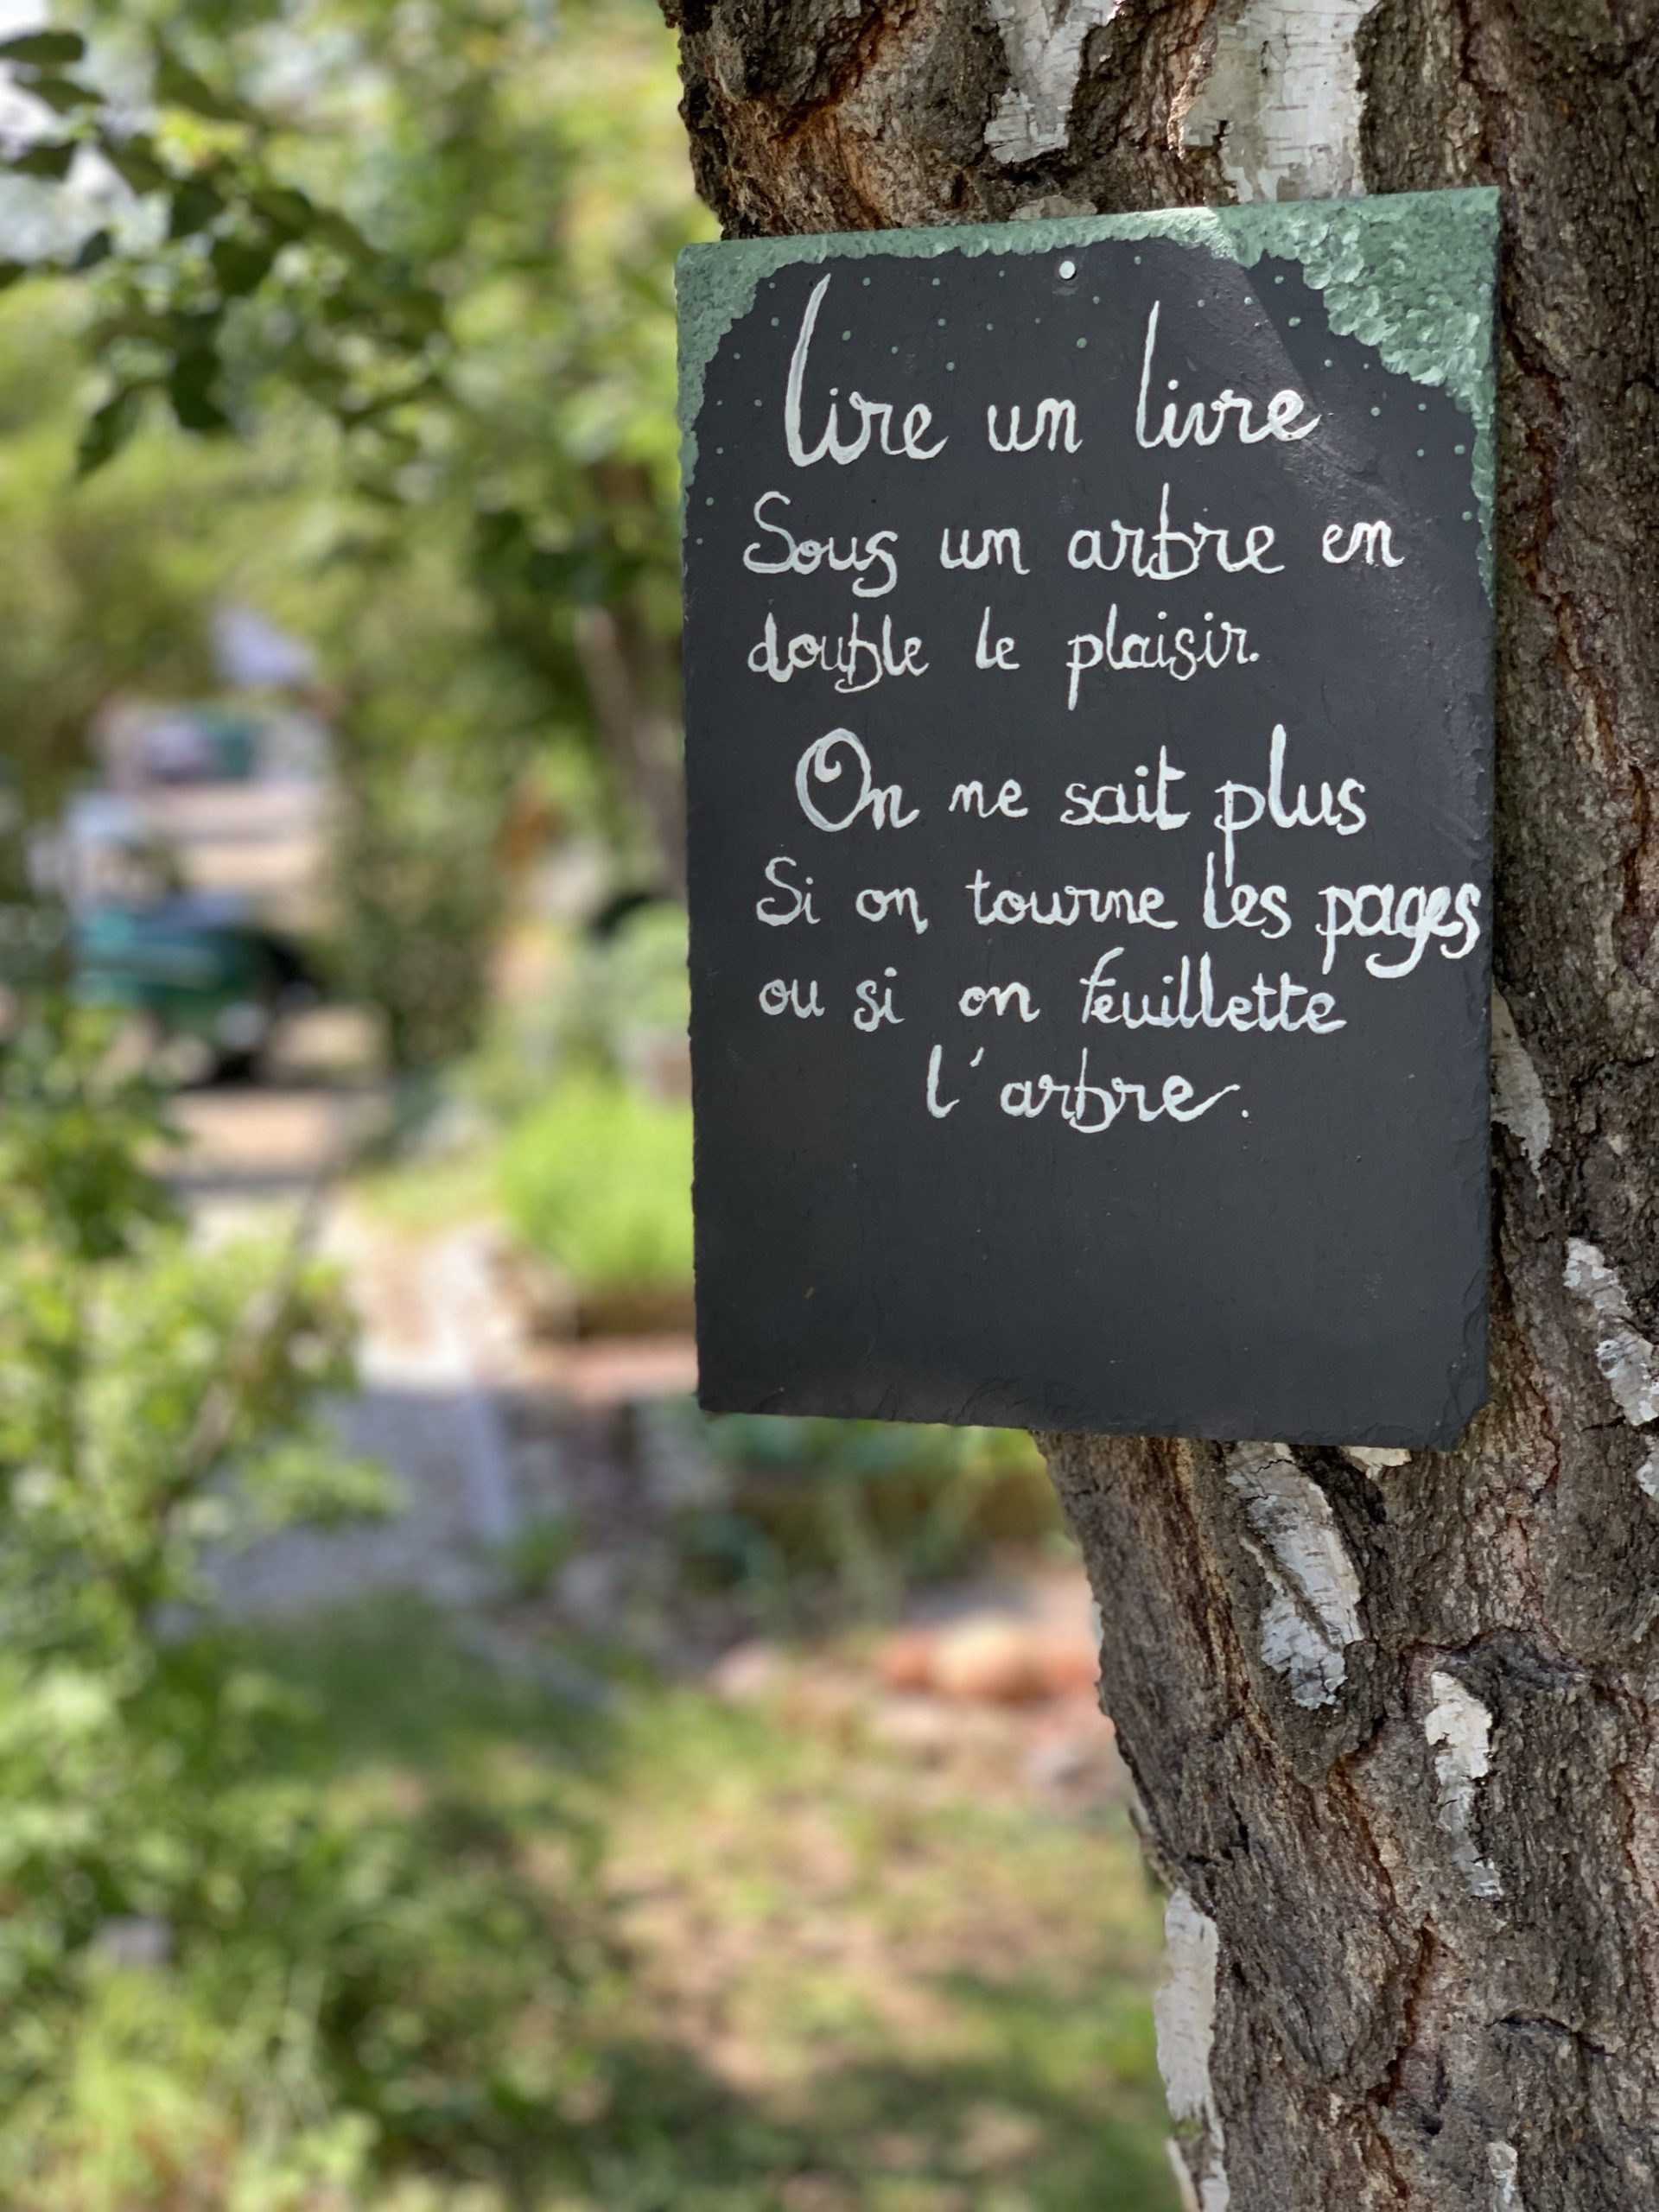 lire un livre
Sous un arbre en
double le plaisir.
On ne sait plus
Si on tourne les pages
ou si on feuillette
l'arbre.